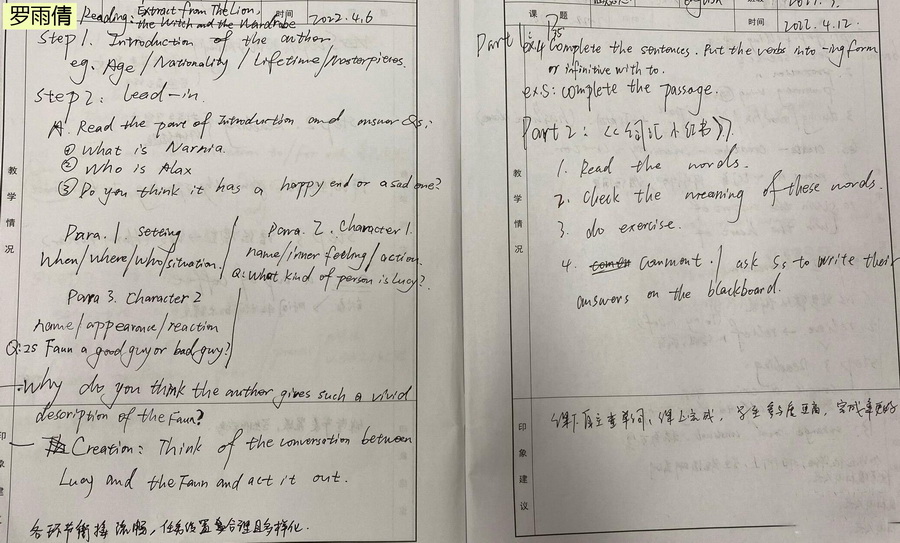 罗雨倩
Reading: Extract from The Lion,
the Witch and the Wardrobe
时间
2022.4.6
Step 1. Introduction of the author
eg. Age / Nationality / Lifetime / masterpieces.
Step 2: Lead-in.
A. Read the part of Introduction and answer Qs:
① What is Narnia
② Who is Alax
③ Do you think it has a happy end or a sad one?
Para. 1 setting
When/where/who/situation.
Para. 2. Character 1.
name/inner feeling/action.
Q: What kind of person is Lucy?
Para 3. Character 2
name/appearance/reaction
Q: Is Faun a good guy or bad guy?
Why do you think the author gives such a vivid
description of the Faun?
Creation: Think of the conversation between
Lucy and the Faun and act it out.
各环节衔接流畅，任务设置合理且多样化.
教学情况
课 题
时间
2022.4.12.
Part 1: P35
ex4 Complete the sentences. Put the verbs into -ing form
or infinitive with to.
ex5: complete the passage.
Part 2: 《词汇小红书》
1. Read the words.
2. Check the meaning of these words.
3. do exercise.
4. comment. / ask Ss to write their
answers on the blackboard.
教学情况
印象建议